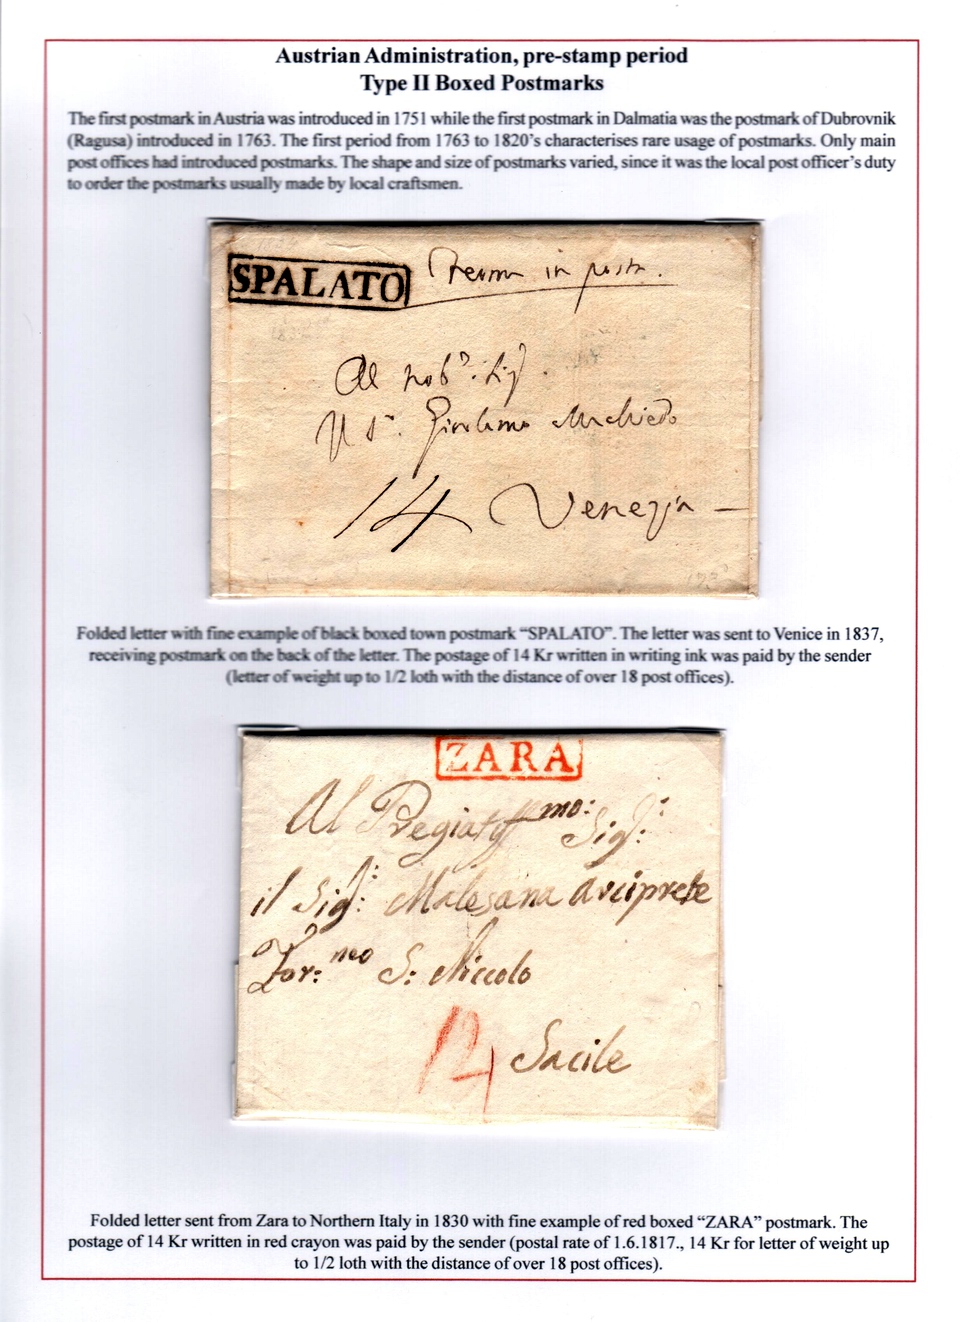 Austrian Administration, pre-stamp period
Type II Boxed Postmarks
The first postmark in Austria was introduced in 1751 while the first postmark in Dalmatia was the postmark of Dubrovnik
(Ragusa) introduced in 1763. The first period from 1763 to 1820's characterises rare usage of postmarks. Only main
post offices had introduced postmarks. The shape and size of postmarks varied, since it was the local post officer's duty
to order the postmarks usually made by local craftsmen.
SPALATO
in posta.
Al nob. Sig.
Girolamo
14 Venezia
Folded letter with fine example of black boxed town postmark “SPALATO”. The letter was sent to Venice in 1837,
receiving postmark on the back of the letter. The postage of 14 Kr written in writing ink was paid by the sender
(letter of weight up to 1/2 loth with the distance of over 18 post offices).
ZARA
Al Pregiatmo: Sig:
il Sig: Malesana Arciprete
S: Niccolo
14 Sacile
Folded letter sent from Zara to Northern Italy in 1830 with fine example of red boxed “ZARA” postmark. The
postage of 14 Kr written in red crayon was paid by the sender (postal rate of 1.6.1817., 14 Kr for letter of weight up
to 1/2 loth with the distance of over 18 post offices).